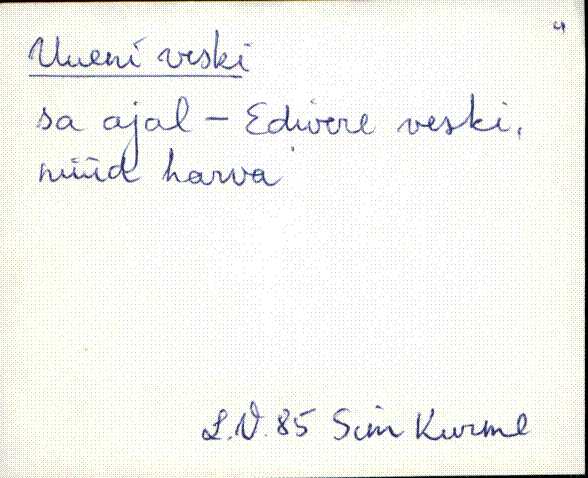 Uueni veski
sa ajal – Edivere veski,
nüüd harva
L.V. 85 Siim Kurme